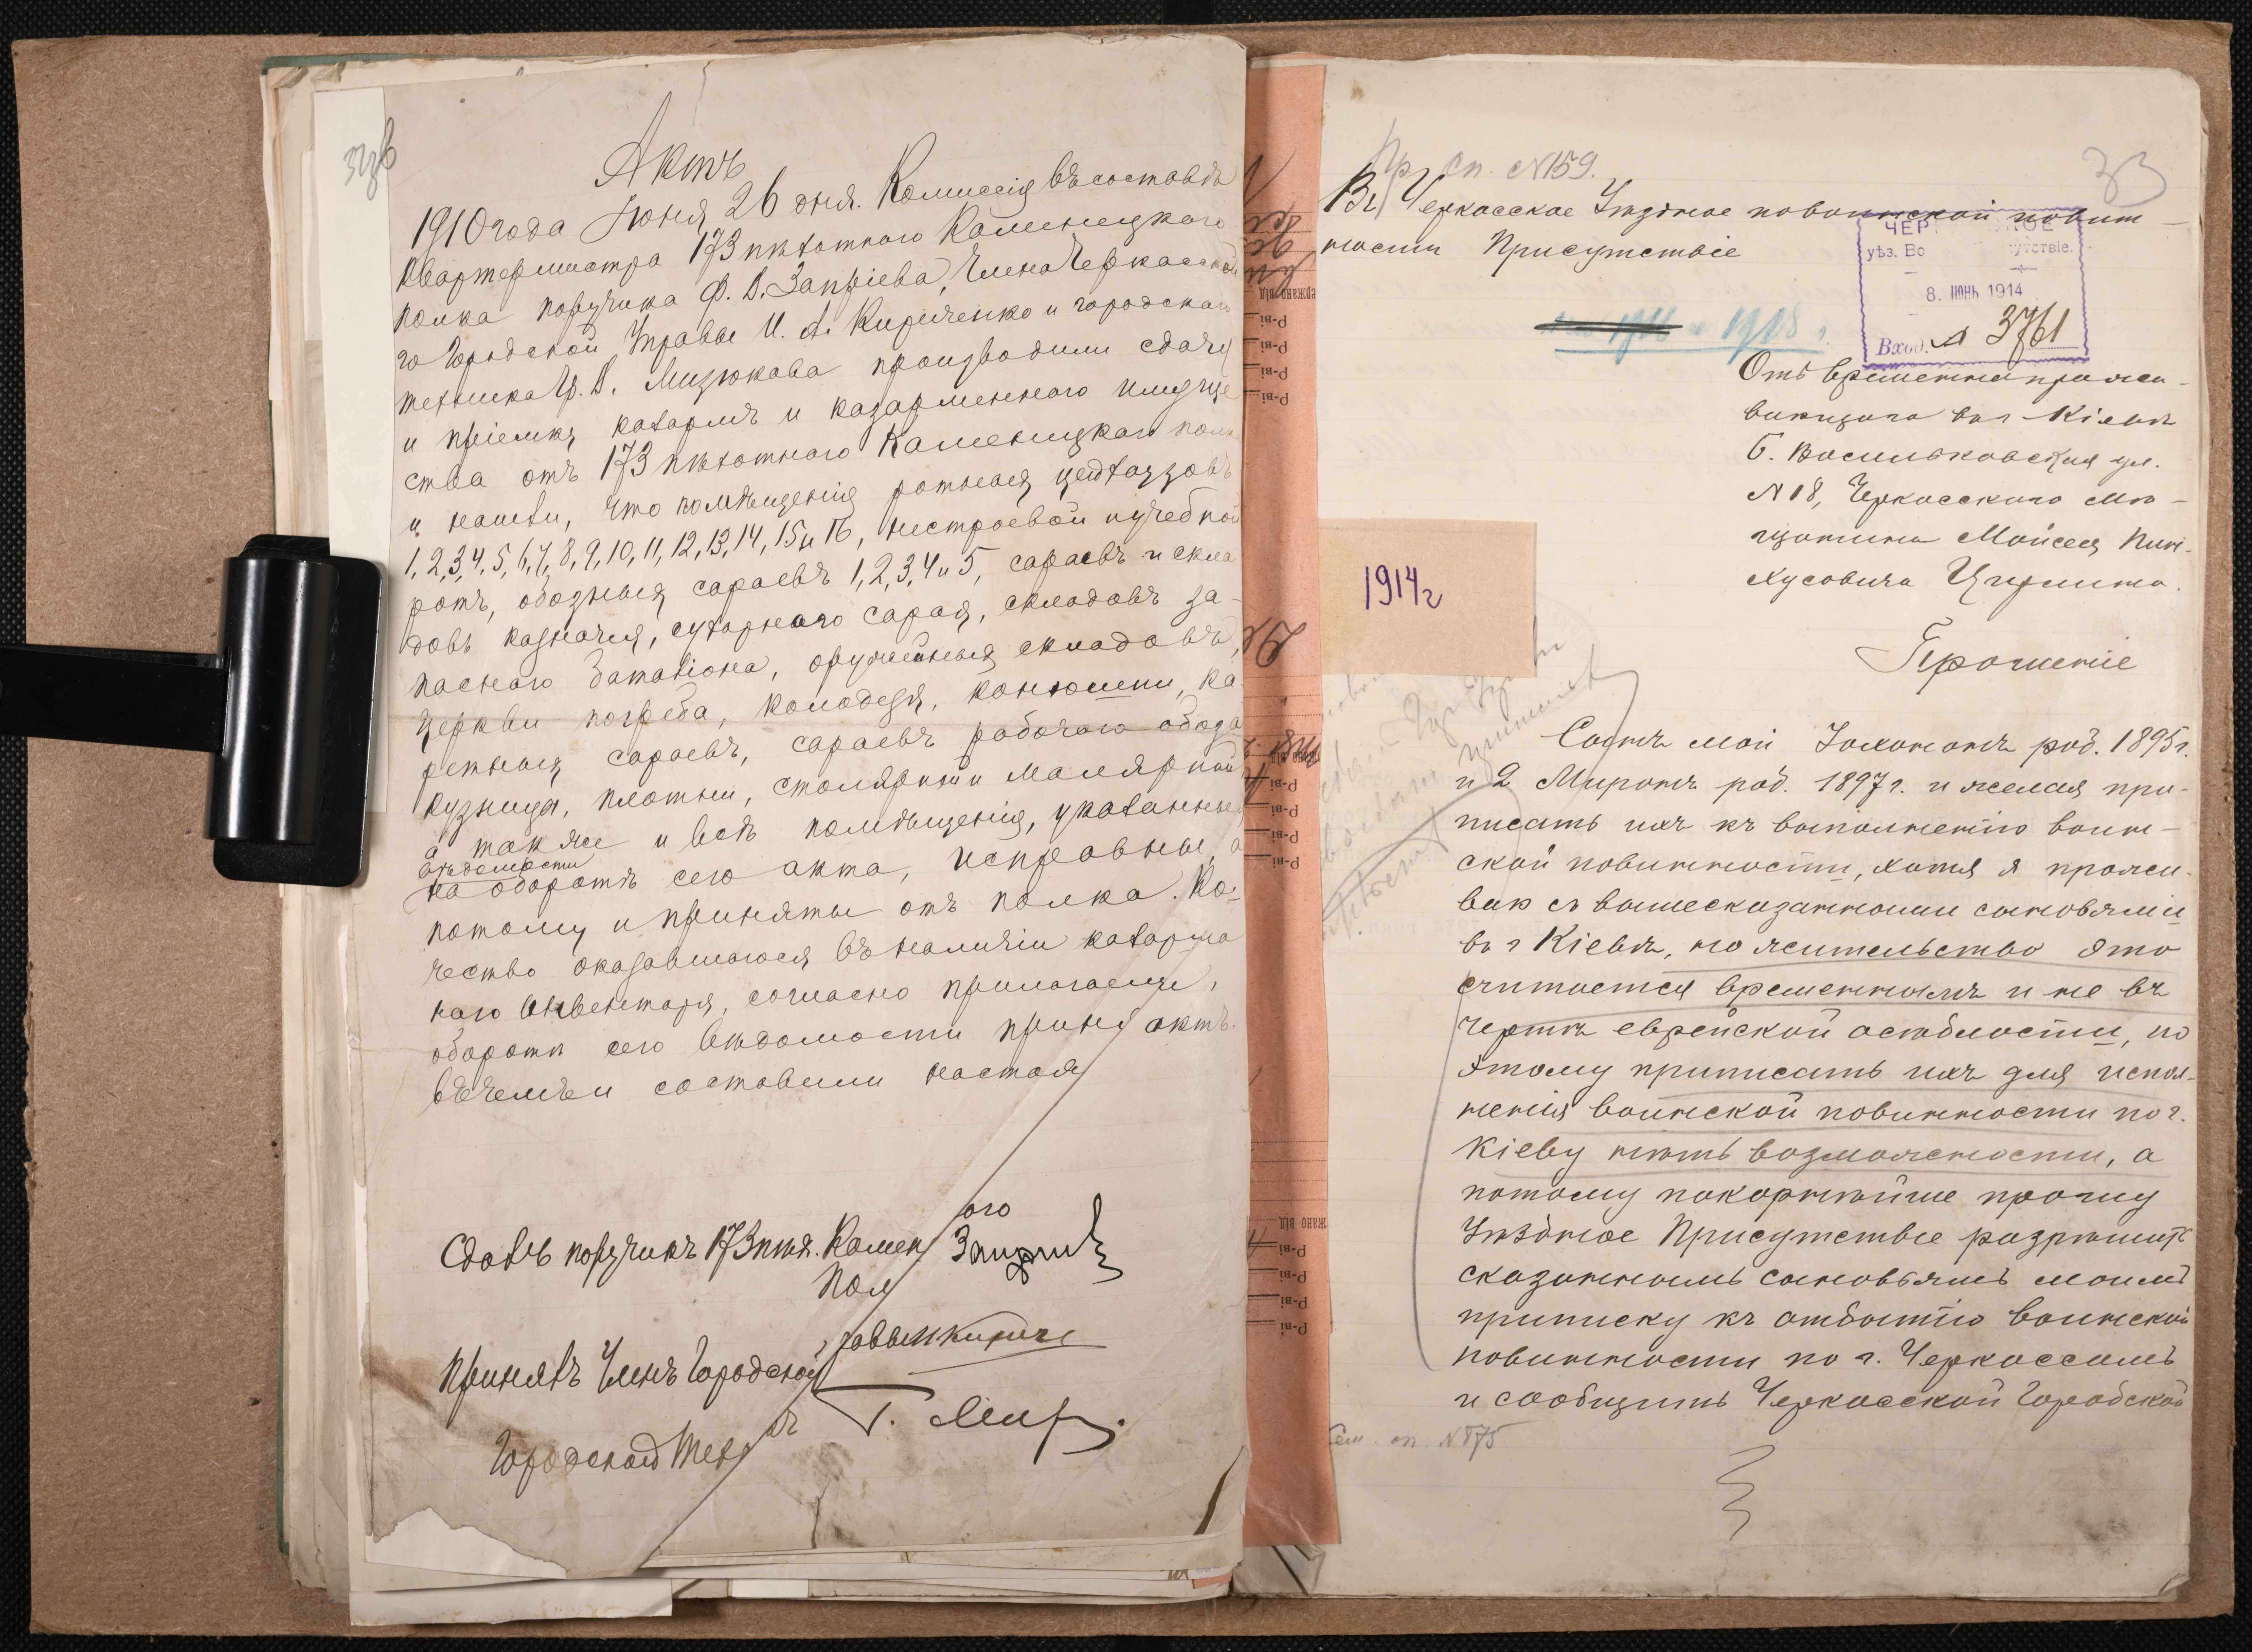 32б
Актъ
1910 года Июня 26 дня. Комиссія въ составѣ
Квартермистра 173 пѣхотнаго Каменецкаго
полка поручика Ф. В. Запріева, Члена Черкасской
го Городской Управы И. А. Кириченко и городскаго
техника Гр. В. Мизюкова производили сдачу
и пріемку казармъ и казарменнаго имуще
ства отъ 173 пѣхотнаго Каменецкаго полка
и нашли, что помѣщенія ротныя цейхгаузовъ
1, 2, 3, 4, 5, 6, 7, 8, 9, 10, 11, 12, 13, 14, 15 и 16, нестроевой и учебной
ротъ, обозныя сараевъ 1, 2, 3, 4 и 5, сараевъ и скла
довъ казначея, сухарнаго сарая, складовъ за-
паснаго баталіона, оружейныя складовъ,
церкви погреба, колодезя, конюшни, ка
ретныя сараевъ, сараевъ рабочаго обоза
кузницы, плотни, столярной и малярной
а так же и всѣ помѣщенія, указанные
вѣдомости
на оборотѣ сего акта, исправные, а
потому и приняты отъ полка. Ко-
чество оказавшагося въ наличіи казарма
наго инвентаря, согласно прилагаемы,
оборотѣ сего вѣдомости приня актъ.
въ чемъ и составили настоя
Сдалъ поручикъ 173 пѣх. Камен ого
Пол
Принялъ Членъ Городской
Городской Тех къ
Пр. сп. № 159.
33
Въ Черкасское Уѣздное по воинской повин-
ности Присутствіе
ЧЕР КОЕ
уѣз. Во утствіе.
8. ИЮНЬ 1914
Вход. № 3761
1918 г.
Отъ временно прожи-
вающаго въ г. Кіевѣ
Б. Васильковская ул.
№ 18, Черкасскаго мѣ-
щанина Мойсея Пин-
хусовича
Прошеніе
1914 г
Сынъ мой род. 1895 г.
и 2 Миронъ род. 1897 г. и желая при-
писать ихъ къ выполненію воин-
ской повинности, хотя я прожи-
ваю съ вышесказанными сыновями
въ г Кіевѣ, но жительство это
считается временнымъ и не въ
чертѣ еврейской осѣдлости, по
этому приписать ихъ для испол-
ненія воинской повинности по г.
Кіеву нѣтъ возможности, а
потому покорнѣйше прошу
Уѣздное Присутствіе разрѣшить
сказаннымъ сыновьямъ моимъ
приписку къ отбытію воинской
повинности по г. Черкассамъ
и сообщить Черкасской Городской
Сем. сп. № 875